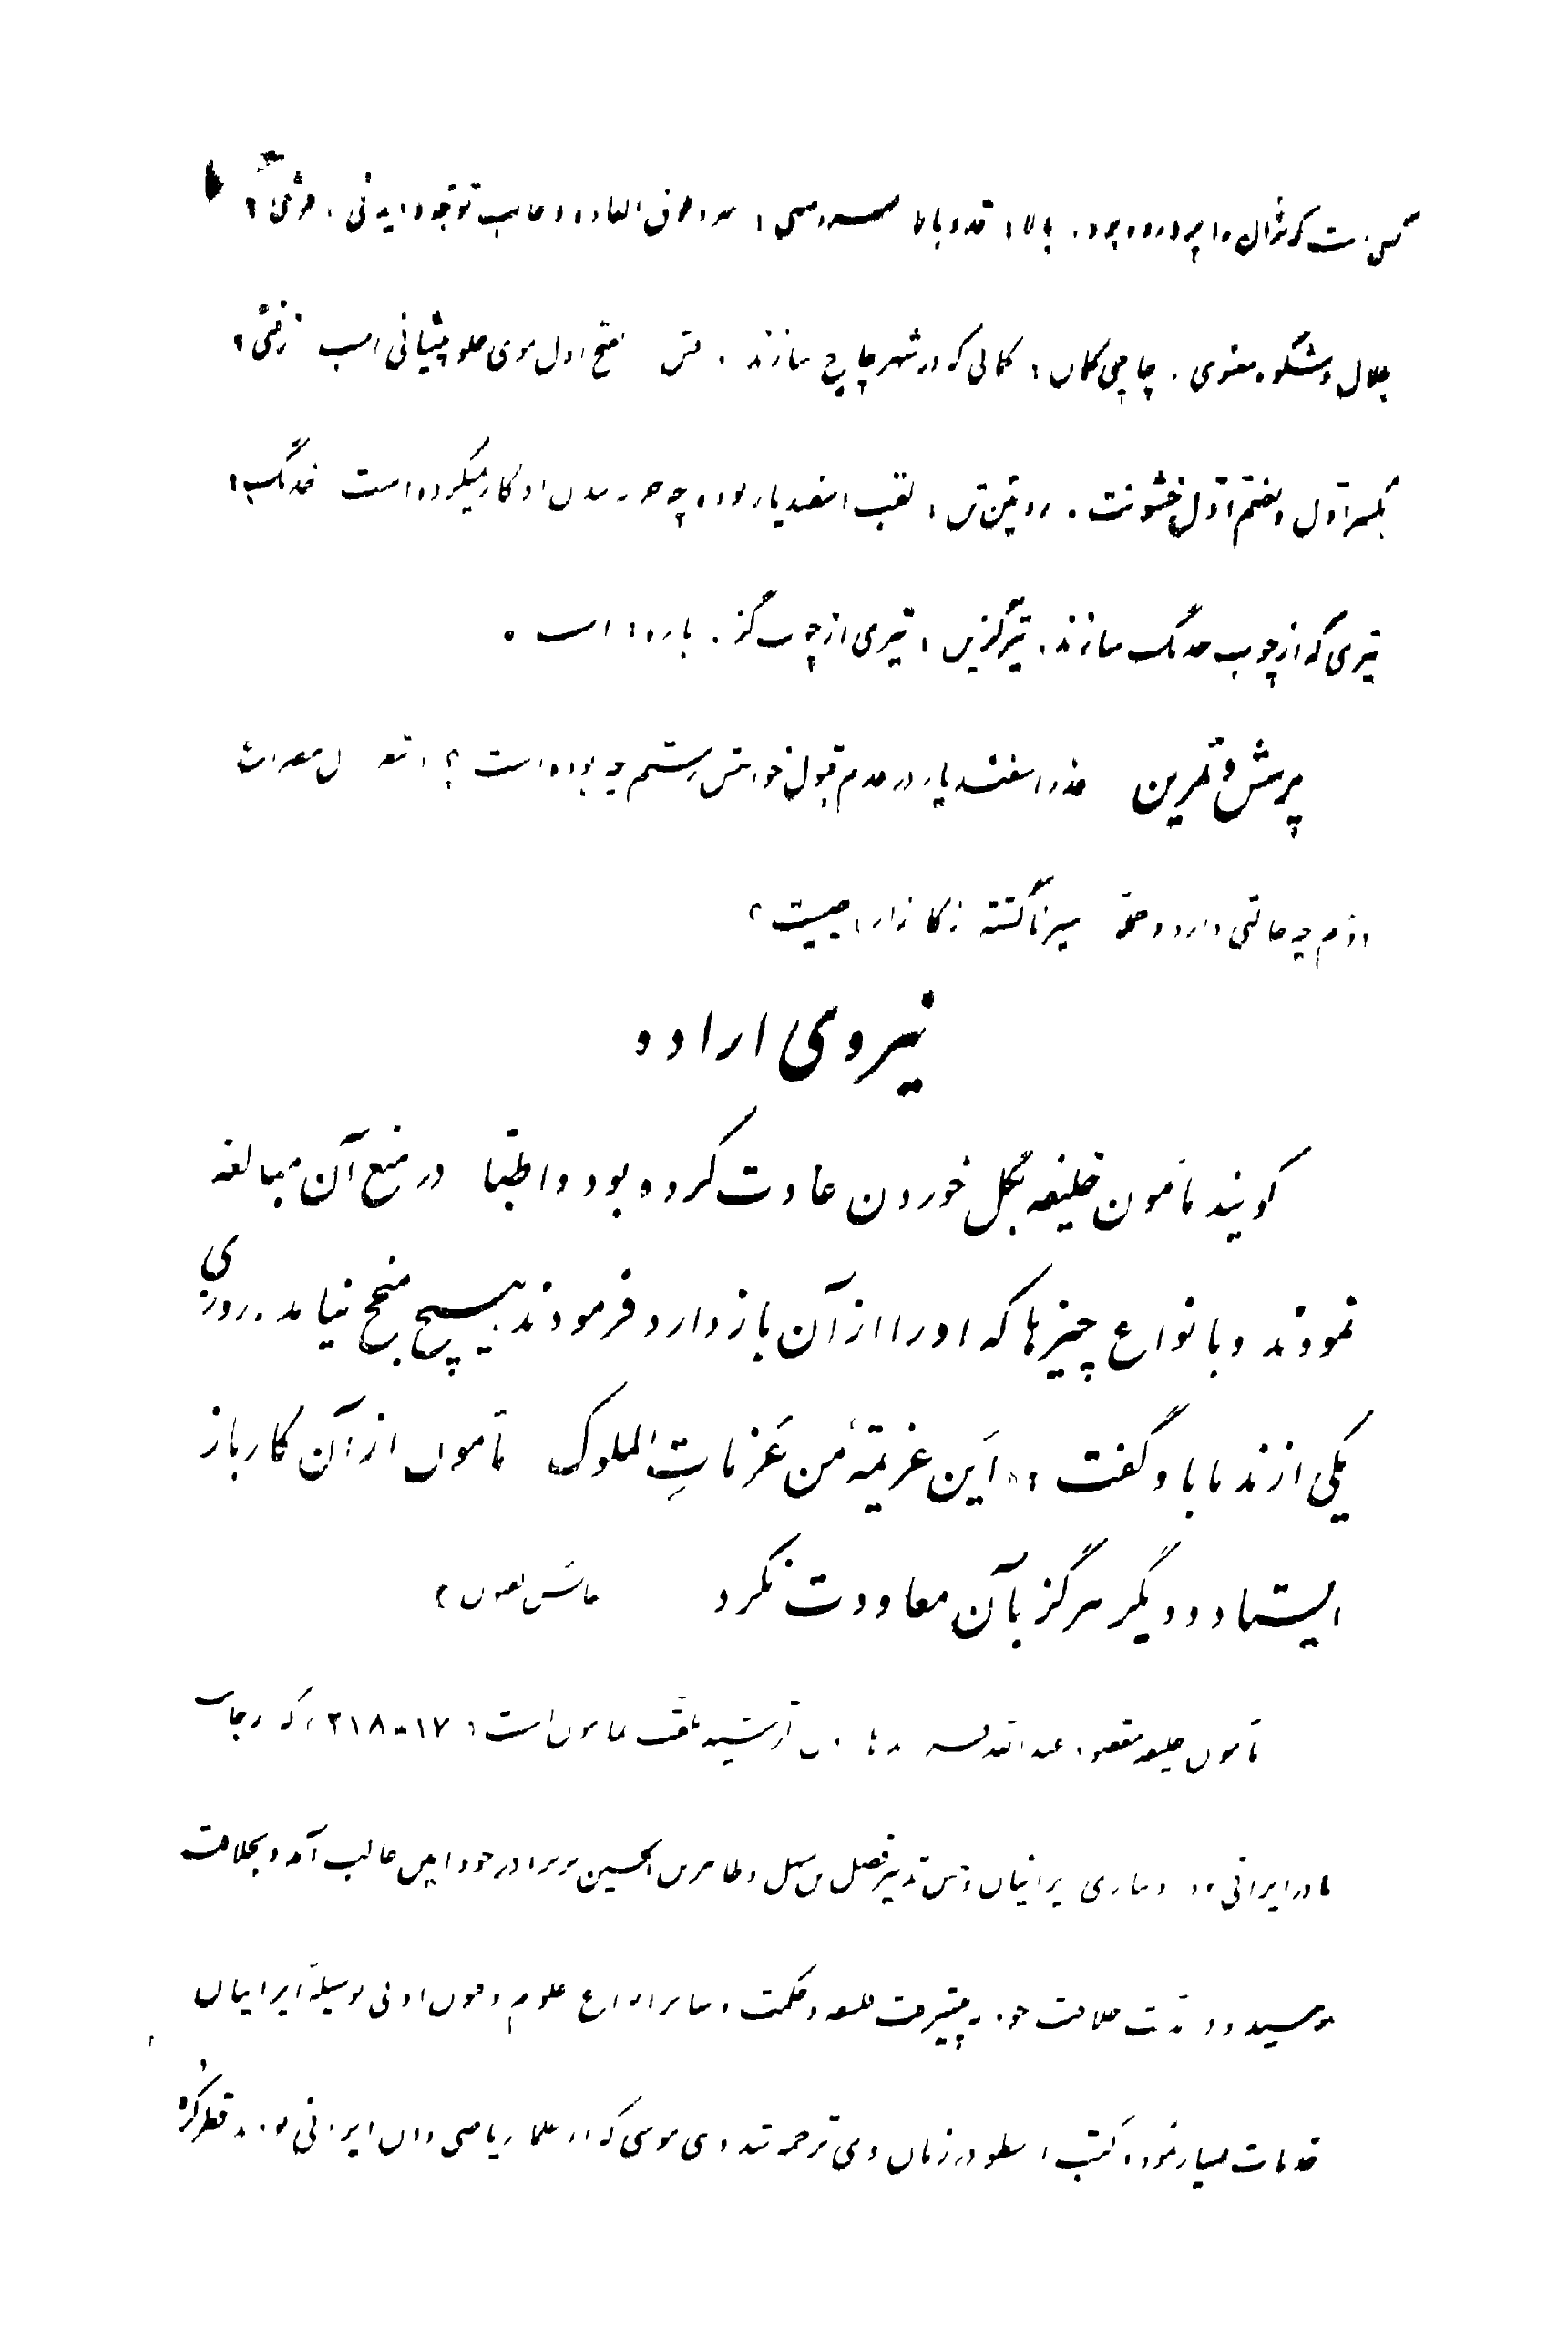 است که زال را پرورده بود. بالا: قد و بالا العاده و جالب توجه ایزدی.
جلال و شکوه معنوی. چاچی کمان: کمانی که در شهر چاچ سازند. فتح اول موی جلو پیشانی اسب
بکسر اول و بفتم اول خشونت. روئین تن: لقب اسفندیار او کار نمیکرده است خدنگ:
تیری که از چوب خدنگ سازند. تیر گزین: تیری از چوب گز. باره: اسب.
پرسش و تمرین عذر اسفندیار در عدم قبول خواهش رستم چه بوده است؟
چه حالتی دارد و جملهٔ سیر ناگشته ز کارزار چیست؟
نیروی اراده
گویند مأمون خلیفه بگل خوردن عادت کرده بود و اطبّا در منع آن مبالغه
نمودند و بانواع چیزها که او را از آن باز دارد فرمودند هیچ منجح نیامد. روزی
یکی از ندما با و گفت: «اَین عزیمَةٌ من عَزماتِ الملوک مأمون از آن کار باز
ایستاد و دیگر هرگز بآن معاودت نکرد
مأمون خلیفه مقصود عبدالله است ۲۱۸-۱۷ که از جانب
مادر ایرانی بود ایرانیان تدبیر فضل بن سهل و طاهر بن الحسین بر برادر خود امین غالب آمد و بخلافت
رسید و در مدت خلافت خود به پیشرفت فلسفه و حکمت و سایر انواع علوم و فنون ادبی بوسیلهٔ ایرانیان
خدمات بسیار نمود. کتب ارسطو در زمان وی ترجمه شد موسی که از علما ریاضی دان ایرانی بودند قطر کره